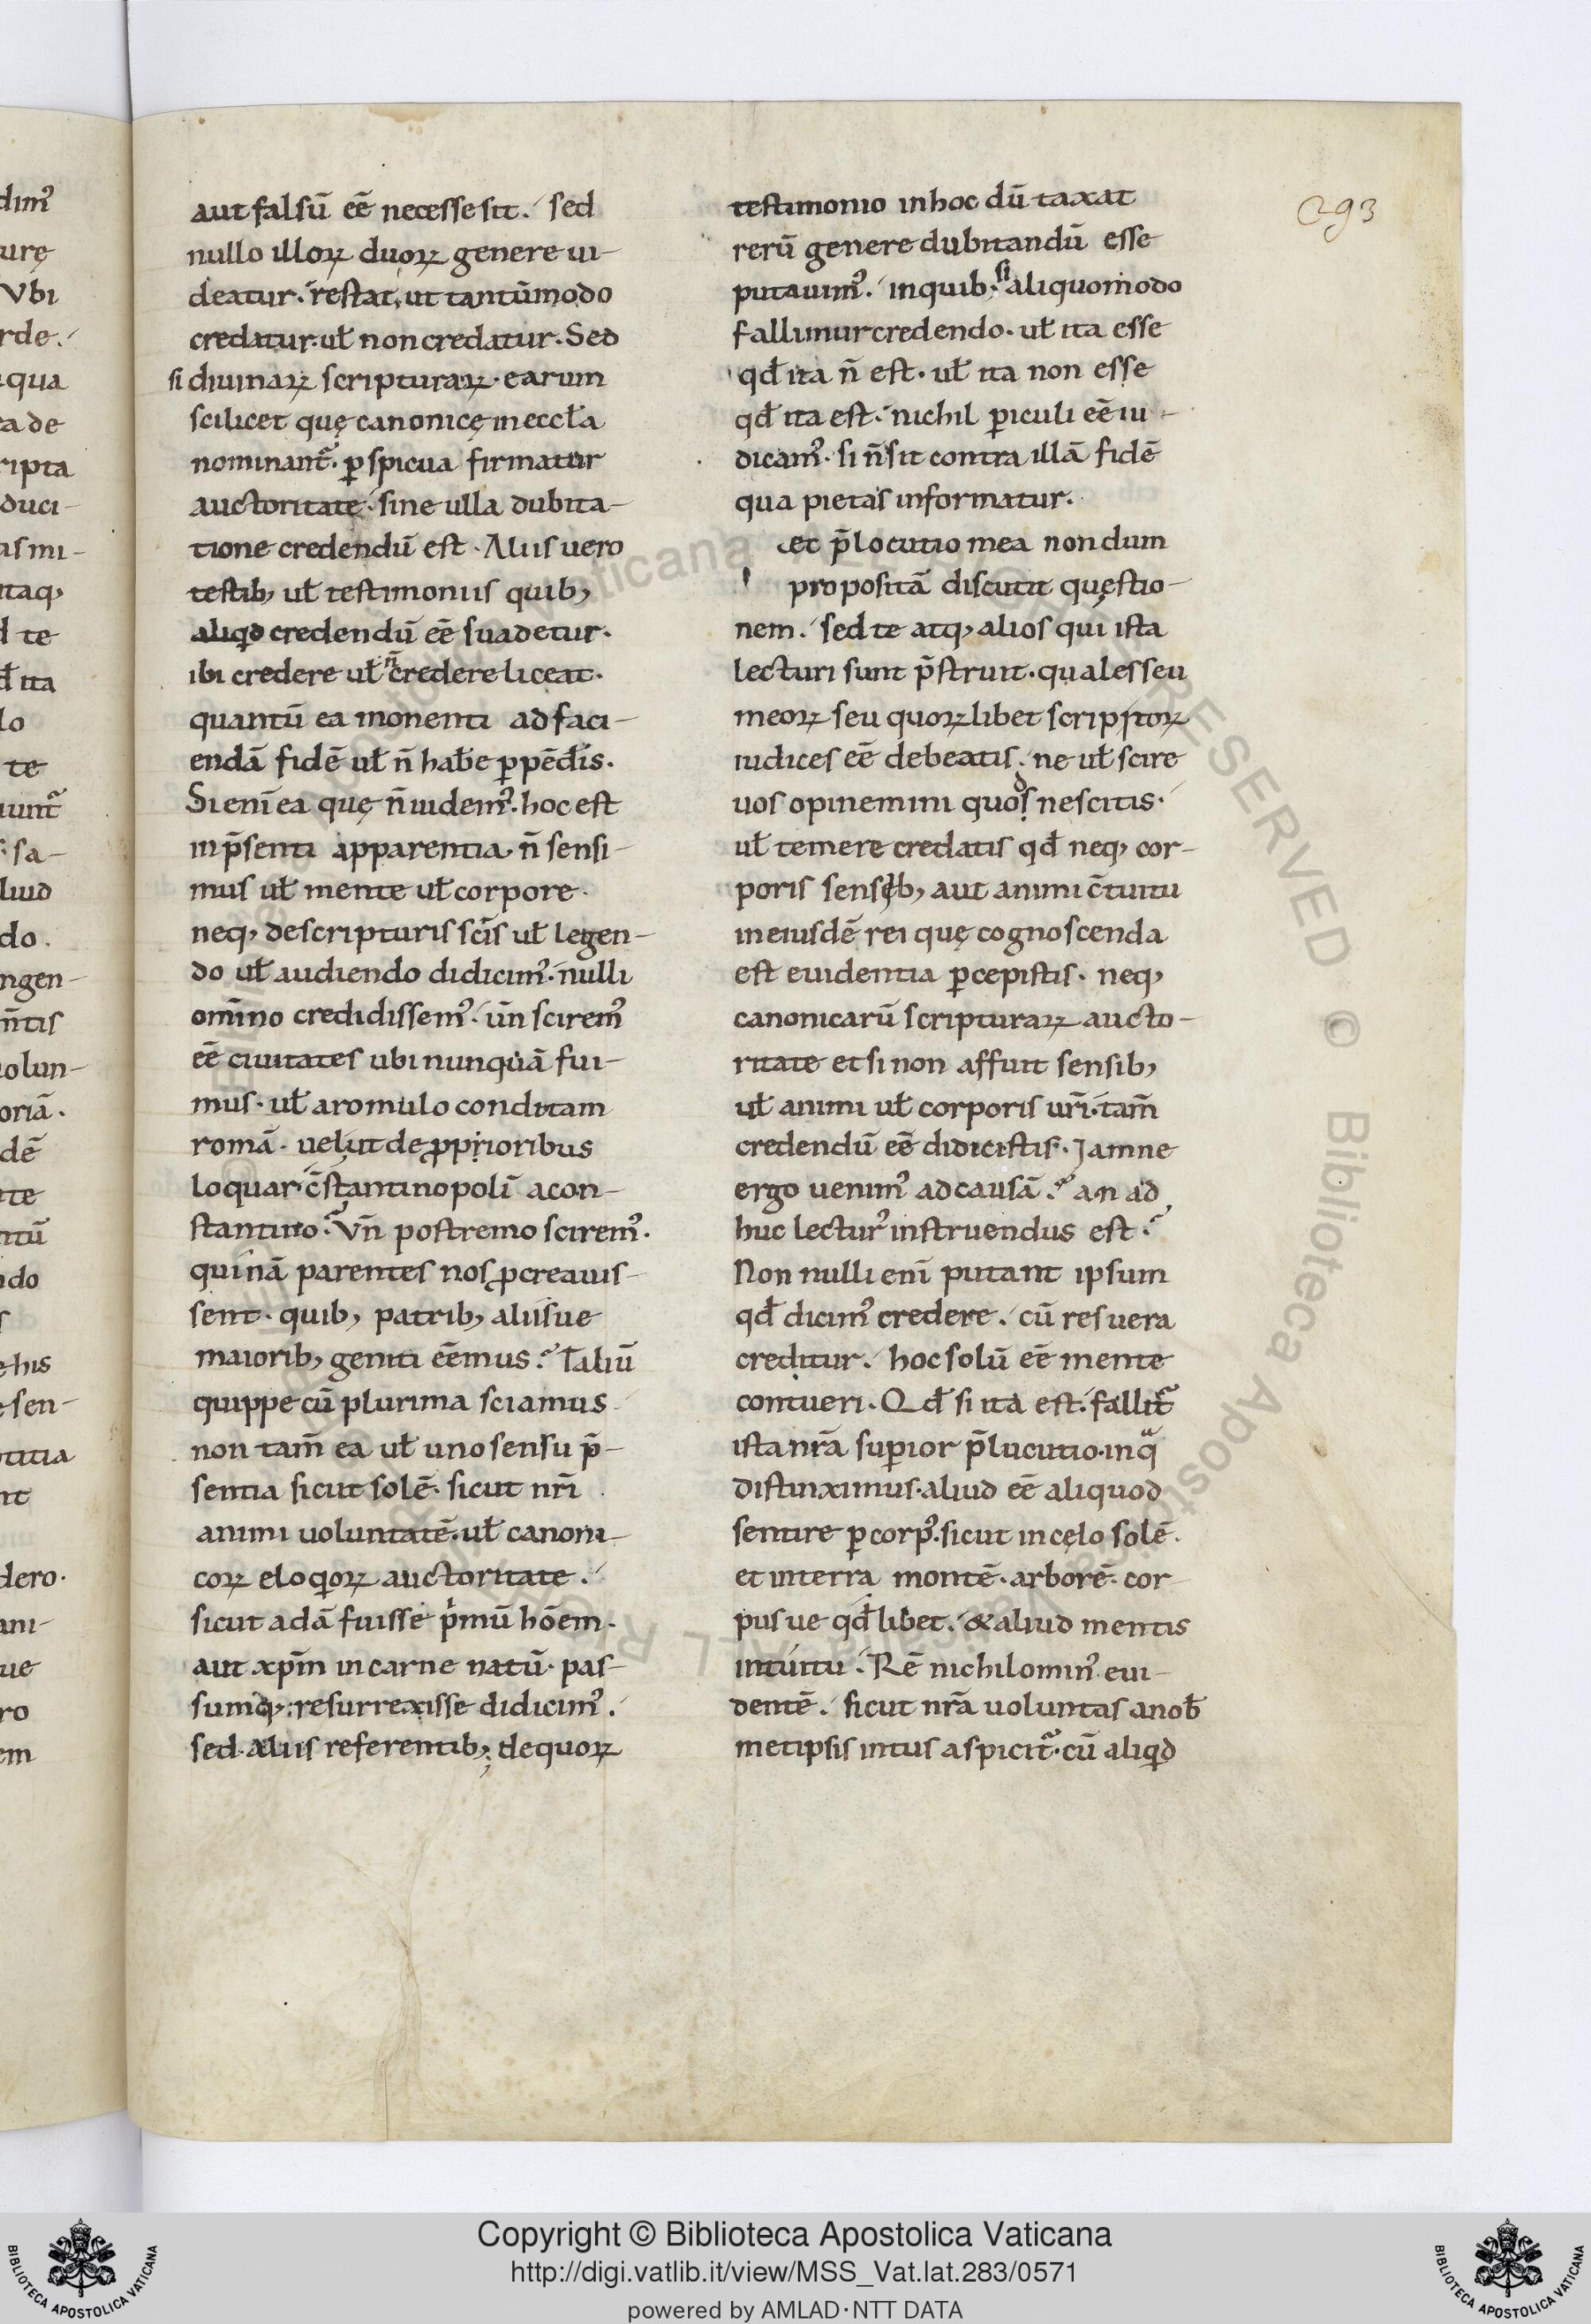 dim᷒
urę
Vbi
rde.
qua
a de
ripta
duci-
as mi-
itaq;
d te
đ ita
lo
te
iunt᷑
sa-
liud
do.
ngen-
n̄tis
uolun-
oriā.
dē
te
ntū
ndo
s
e his
sen-
titia
nt
dero.
ani-
ue
ro
em
aut falsū eē necesse sit. sed
nullo illoꝝ duoꝝ genere ui-
deatur. restat, ut tantūmodo
credatur. ul̄ non credatur. Sed
si diuinaꝝ scripturaꝝ. earum
scilicet quę canonicę in eccl̄a
nominant᷑. ꝑspicua firmatur
auctoritate. sine ulla dubita-
tione credendū est. Aliis uero
testib; ul̄ testimoniis quib;
aliqd credendū eē suadetur.
ibi credere ul̄ n̄ credere liceat.
quantū ea monenti ad faci-
endā fidē ul̄ n̄ hab̄e ꝑpēd̄is.
Si eni̅ ea quę n̄ uidem᷒. hoc est
in p̄senti apparentia n̄ sensi-
mus ul̄ mente ul̄ corpore.
neq; de scripturis sc̄is ul̄ legen-
do ul̄ audiendo didicim᷒. nulli
om̄ino credidissem᷒. un̄ scirem᷒
eē ciuitates ubi nunquā fui-
mus. ul̄ a romulo conditam
romā. uelut de ꝓpprioribus
loquar c̄stantinopoli̅ a con-
stantino. Vn̄ postremo scirem᷒.
quinā parentes nos ꝓcreauis-
sent. quib; patrib; aliisue
maiorib; geniti eēmus. Taliū
quippe cū plurima sciamus
non tam̄ ea ul̄ uno sensu p̄-
sentia sicut solē. sicut nr̄i
animi uoluntatē. ul̄ canoni-
coꝝ eloqioꝝ auctoritate.
sicut adā fuisse pimū hōem.
aut xp̄m in carne natū. pas-
sumq; resurrexisse didicim᷒.
sed aliis referentib; de quoꝝ
testimonio in hoc dū taxat
rerū genere dubitandū esse
putauim᷒. in quib; si aliquomodo
fallimur credendo. ul̄ ita esse
qđ ita n̄ est. ul̄ ita non esse
qđ ita est. nichil ꝑiculi eē iu-
dicam᷒. si n̄ sit contra illā fidē
qua pietas informatur.
et p̄locutio mea nondum
propositā discutit quęstio-
nem. sed te atq; alios qui ista
lecturi sunt p̄struit. quales seu
meoꝝ seu quoꝝlibet scriptoꝝ
iudices eē debeatis. ne ul̄ scire
uos opinemini quod nescitis.
ul̄ temere credatis qđ neq; cor-
poris sensib; aut animi c̄tuitu
in eiusdē rei quę cognoscenda
est euidentia ꝑcepistis. neq;
canonicarū scripturaꝝ aucto-
ritate etsi non affuit sensib;
ul̄ animi ul̄ corporis ur̄i. tam̄
credendū eē didicistis. Jamne
ergo uenim᷒ ad causā. an ad
huc lectur᷒ instruendus est.
Non nulli eni̅ putant ipsum
qđ dicim᷒ credere. cū res uera
creditur. hoc solū eē mente
contueri. Qđ si ita est. fallit᷑
ista nr̄a suꝑior p̄lucutio. in qa
distinximus. aliud eē aliquod
sentire ꝑ corp᷒. sicut in cęlo solē.
et in terra montē. arborē. cor-
pus ue qđlibet. & aliud mentis
intuitu. Rē nichilomin᷒ eui-
dentē. sicut nr̄a uoluntas a nob̄
metipsis intus aspicit᷑. cū aliqd
293
Copyright © Biblioteca Apostolica Vaticana
http://digi.vatlib.it/view/MSS_Vat.lat.283/0571
powered by AMLAD·NTT DATA
BIBLIOTECA APOSTOLICA VATICANA
BIBLIOTECA APOSTOLICA VATICANA